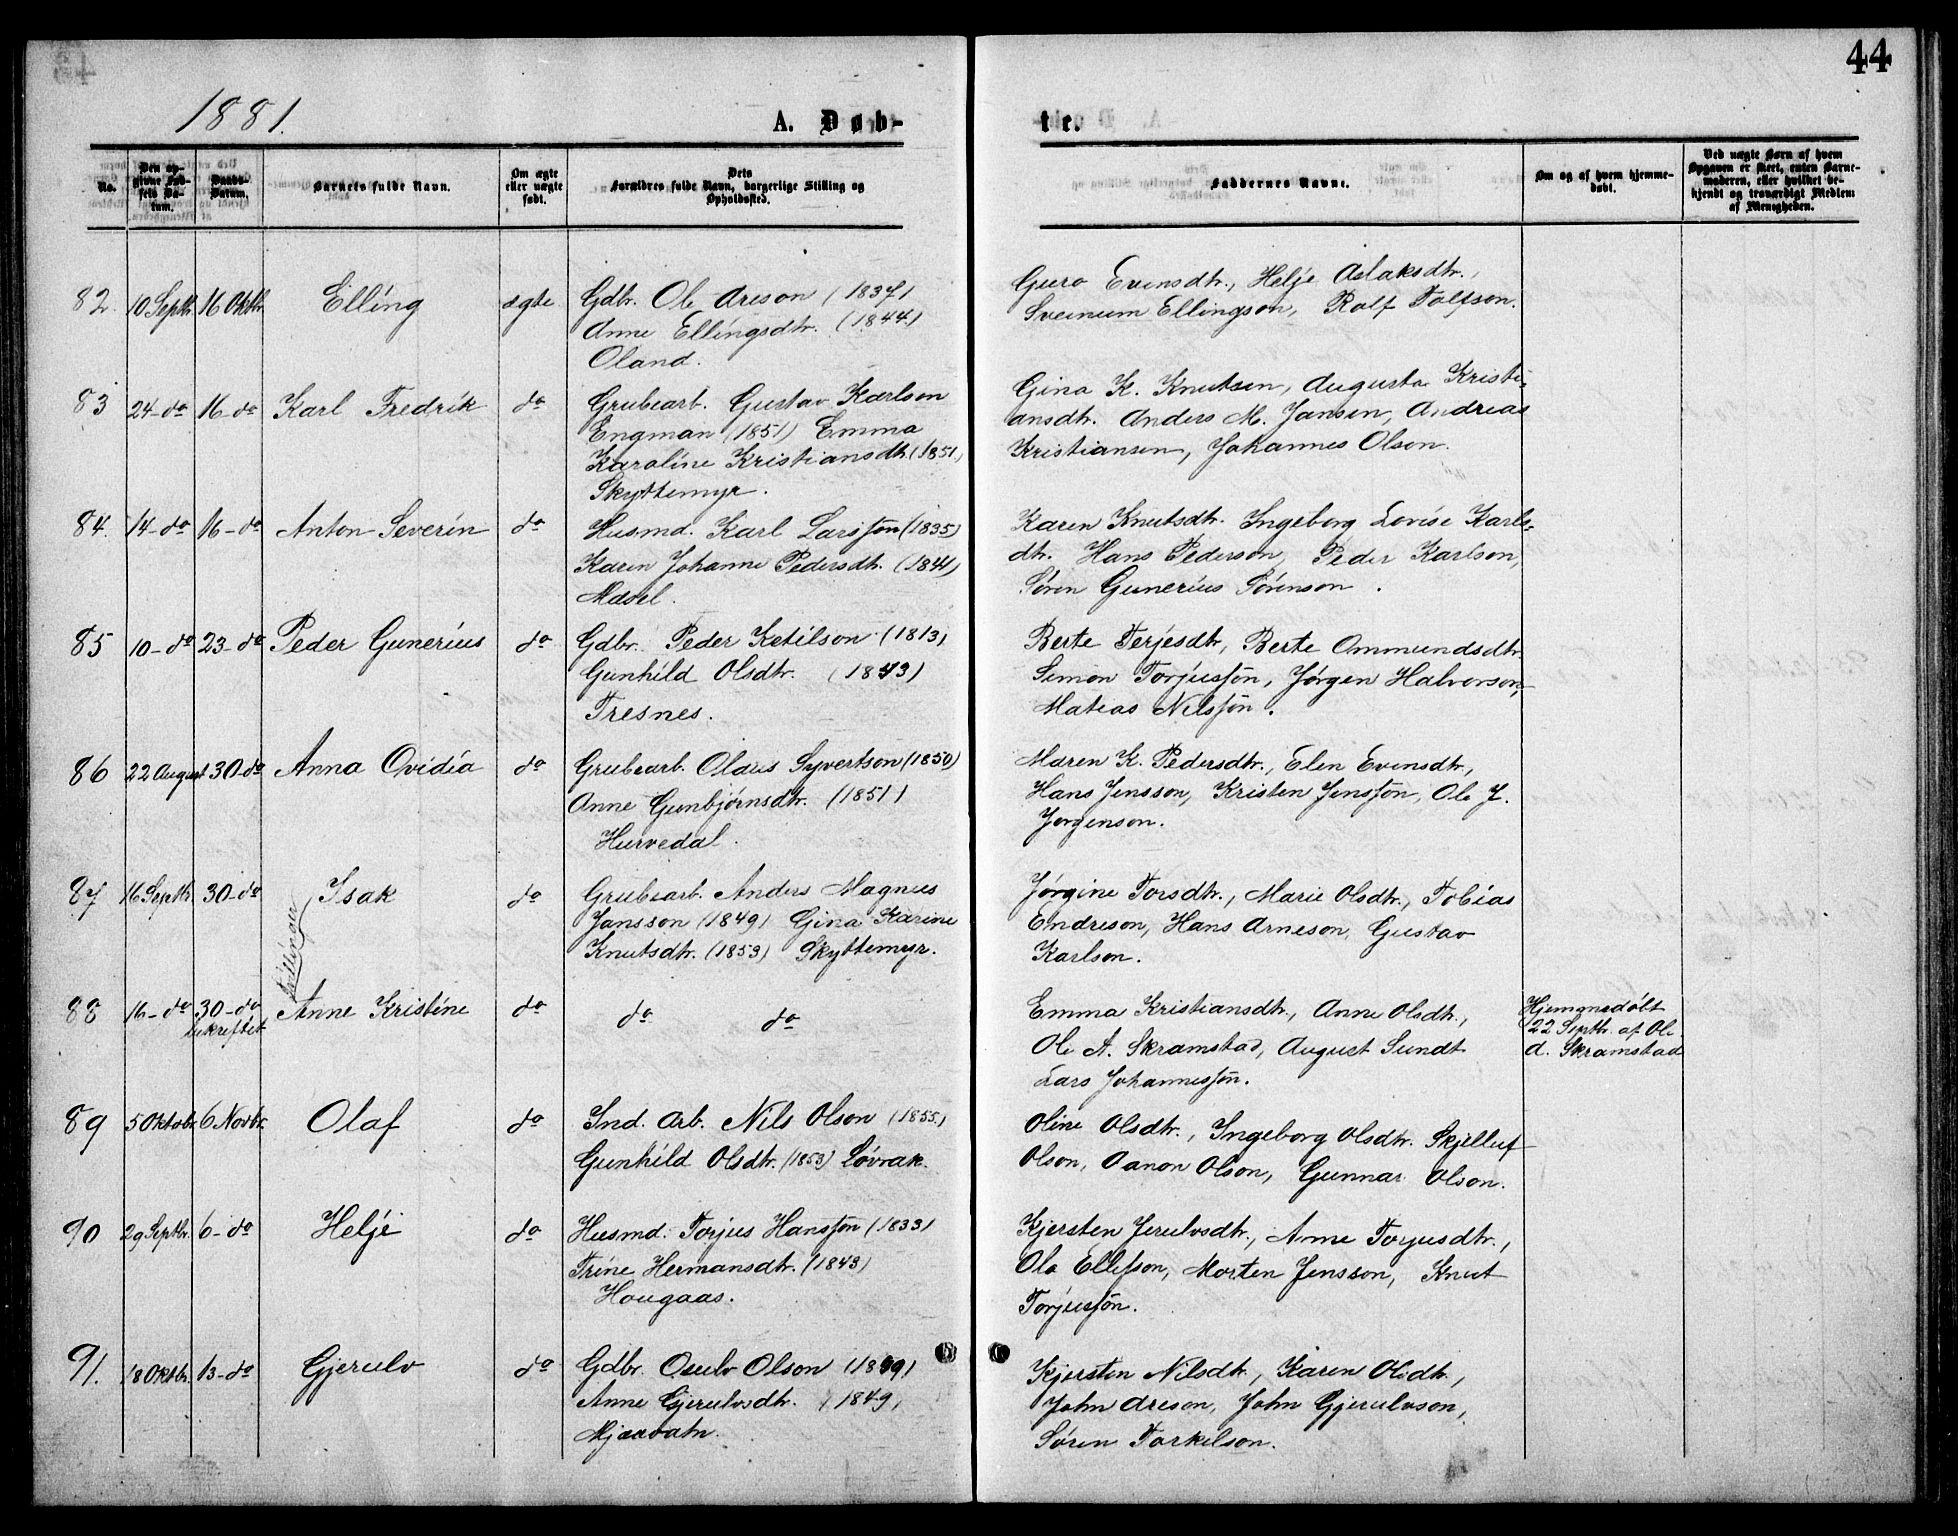 44
1881.
A. Døb-
te.
No.
Den op-
givne Fød-
sels Da-
tum.
Daabs-
Datum.
Barnets fulde Navn.
Om ægte
eller uægte
født.
Dets
Forældres fulde Navn, borgerlige Stilling og
Opholdssted.
Faddernes Navne.
Om og af hvem hjemme-
døbt.
Ved uægte Børn af hvem
Opgaven er skeet, enten Barne-
moderen, eller hvilket be-
kjendt og troværdigt Medlem
af Menigheden.
82. 10 Septbr. 16 Oktbr. Elling ægte Gdbr. Ole Areson (1837)
Anne Ellingsdtr. (1844)
Oland.
Guro Evensdtr., Helje Aslaksdtr.,
Sveinum Ellingson, Rolf Tolfson.
83 24-do 16-do Karl Fredrik do Grubearb. Gustav Karlson
Engman (1851) Emma
Karoline Kristiansdtr. (1851)
Skyttemyr.
Gina K. Knutsen, Augusta Kristi-
ansdtr. Anders M. Jansen, Andreas
Kristiansen, Johannes Olson.
84. 14-do 16-do Anton Severin do Husmd. Karl Larsson (1835)
Karen Johanne Pedersdtr. (1841)
Messel.
Karen Knutsdtr. Ingeborg Lovise Karls-
dtr. Hans Pederson, Peder Karlson,
Søren Gunerius Sørenson.
85 10-do 23-do Peder Gunerius do Gdbr. Peder Ketilson (1813)
Gunhild Olsdtr. (1843)
Tresnes.
Berte Terjesdtr., Berte Ommundsdtr.
Simon Torjusson, Jørgen Halvorson,
Matias Nilsson.
86 22 August 30-do Anna Ovidia do Grubearb. Olaus Syvertson (1850)
Anne Gunbjørnsdtr. (1851)
Hurvedal.
Maren K. Pedersdtr., Elen Evensdtr.,
Hans Jensson, Kristen Jensson, Ole J.
Jørgenson.
87 16 Septbr. 30-do Isak do Grubearb. Anders Magnus
Jansson (1849) Gina Karine
Knutsdtr. (1853) Skyttemyr.
Jørgine Torsdtr., Marie Olsdtr., Tobias
Endreson, Hans Arneson, Gustav
Karlson.
Tvillinger
88 16-do 30-do Anne Kristine do do do
bekreftet
Emma Kristiansdtr., Anne Olsdtr.,
Ole A. Skramstad, August Sundt
Lars Johannesson.
Hjemmedøbt
22 Septbr. af Ole
A. Skramstad
89 5 Oktobr. 6 Novbr. Olaf do Ind. Arb. Nils Olson (1855)
Gunhild Olsdtr. (1853) Løvrak.
Oline Olsdtr., Ingeborg Olsdtr. Skjelluf
Olson, Aanon Olson, Gunnar Olson.
90 29 Septbr. 6-do Helje do Husmd. Torjus Hansson (1833)
Trine Hermansdtr. (1843)
Hougaas.
Kjersten Jerulvsdtr., Anne Torjusdtr.,
Ole Ellefson, Morten Jensson, Knut
Torjusson.
91. 18 Oktbr. 13-do Gjerulv do Gdbr. Osulv Olson
Anne Gjerulvsdtr. (1849)
Mjaavatn.
Kjersten Nilsdtr., Karen Olsdtr.,
John Areson, John Gjerulvson,
Søren Torkelson.